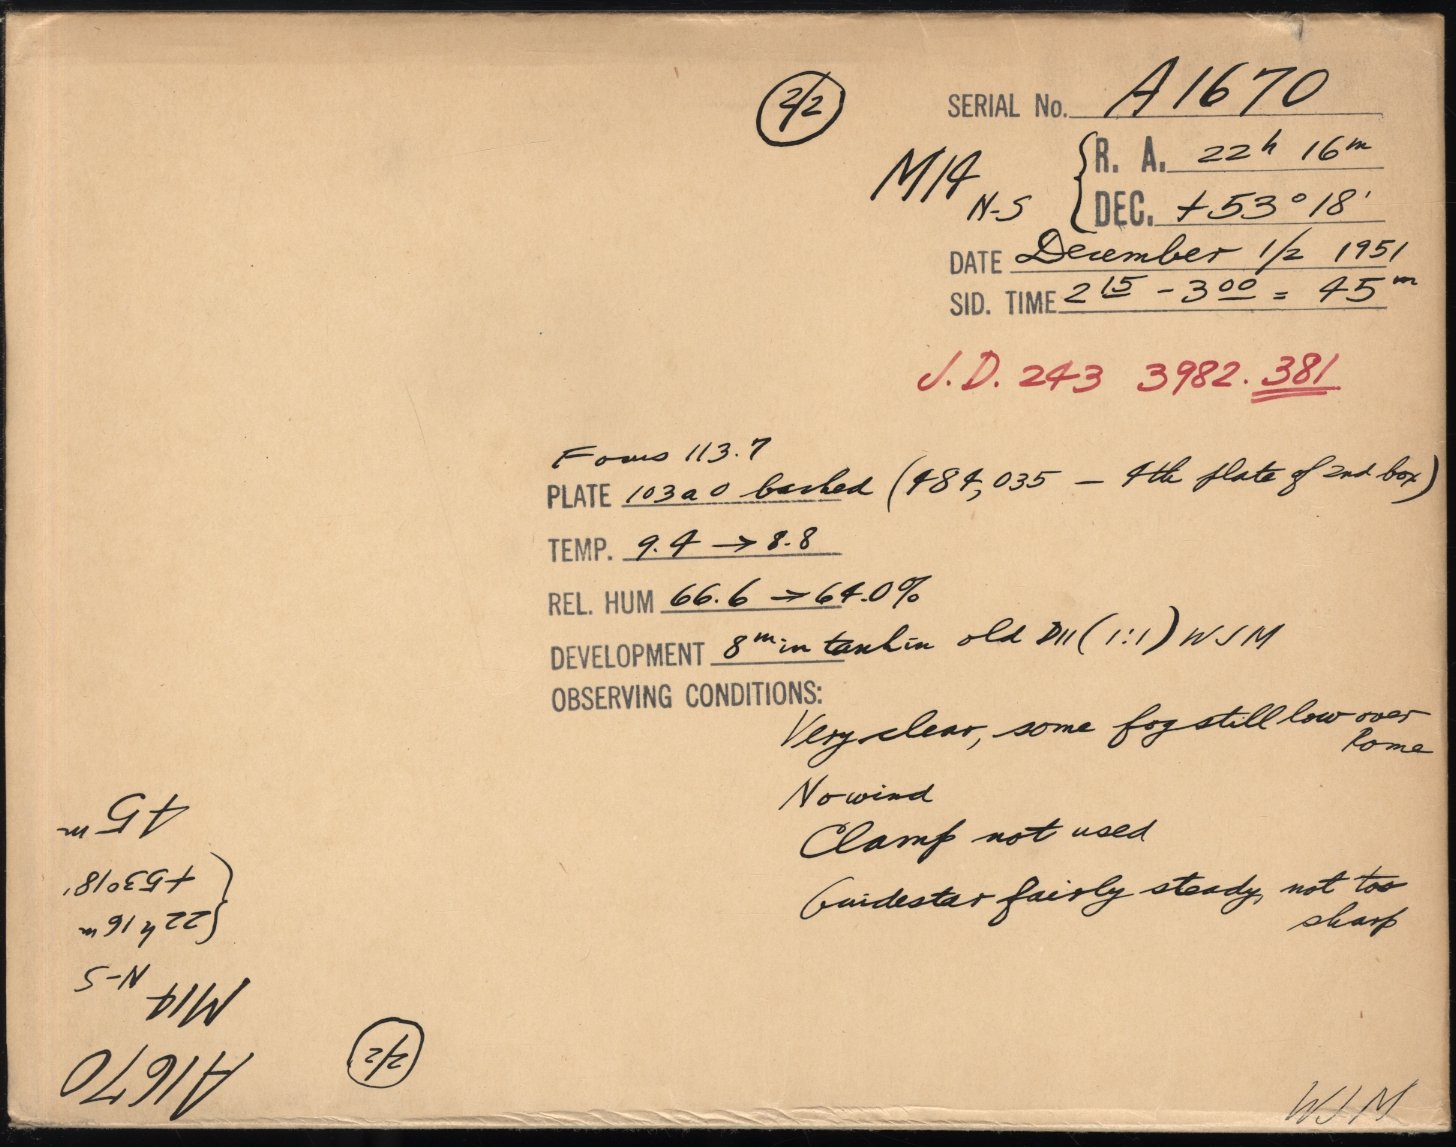 2/2
SERIAL No. A1670
M14 N-S { R. A. 22h 16m
DEC. +53°18'
DATE December 1/2 1951
SID. TIME 2 15 - 3 00 = 45m
J.D. 243 3982.381
Focus 113.7
PLATE 103a O backed (484,035 — 4th plate of 2nd box)
TEMP. 9.4 → 8.8
REL. HUM 66.6 → 64.0%
DEVELOPMENT 8m in tank in old D11 (1:1) WJM
OBSERVING CONDITIONS:
Very clear, some fog still low over
Rome
No wind
Clamp not used
Guidestar fairly steady, not too
sharp
A1670
2/2
M14 N-S
{ 22h 16m
+53°18'
45m
WJM